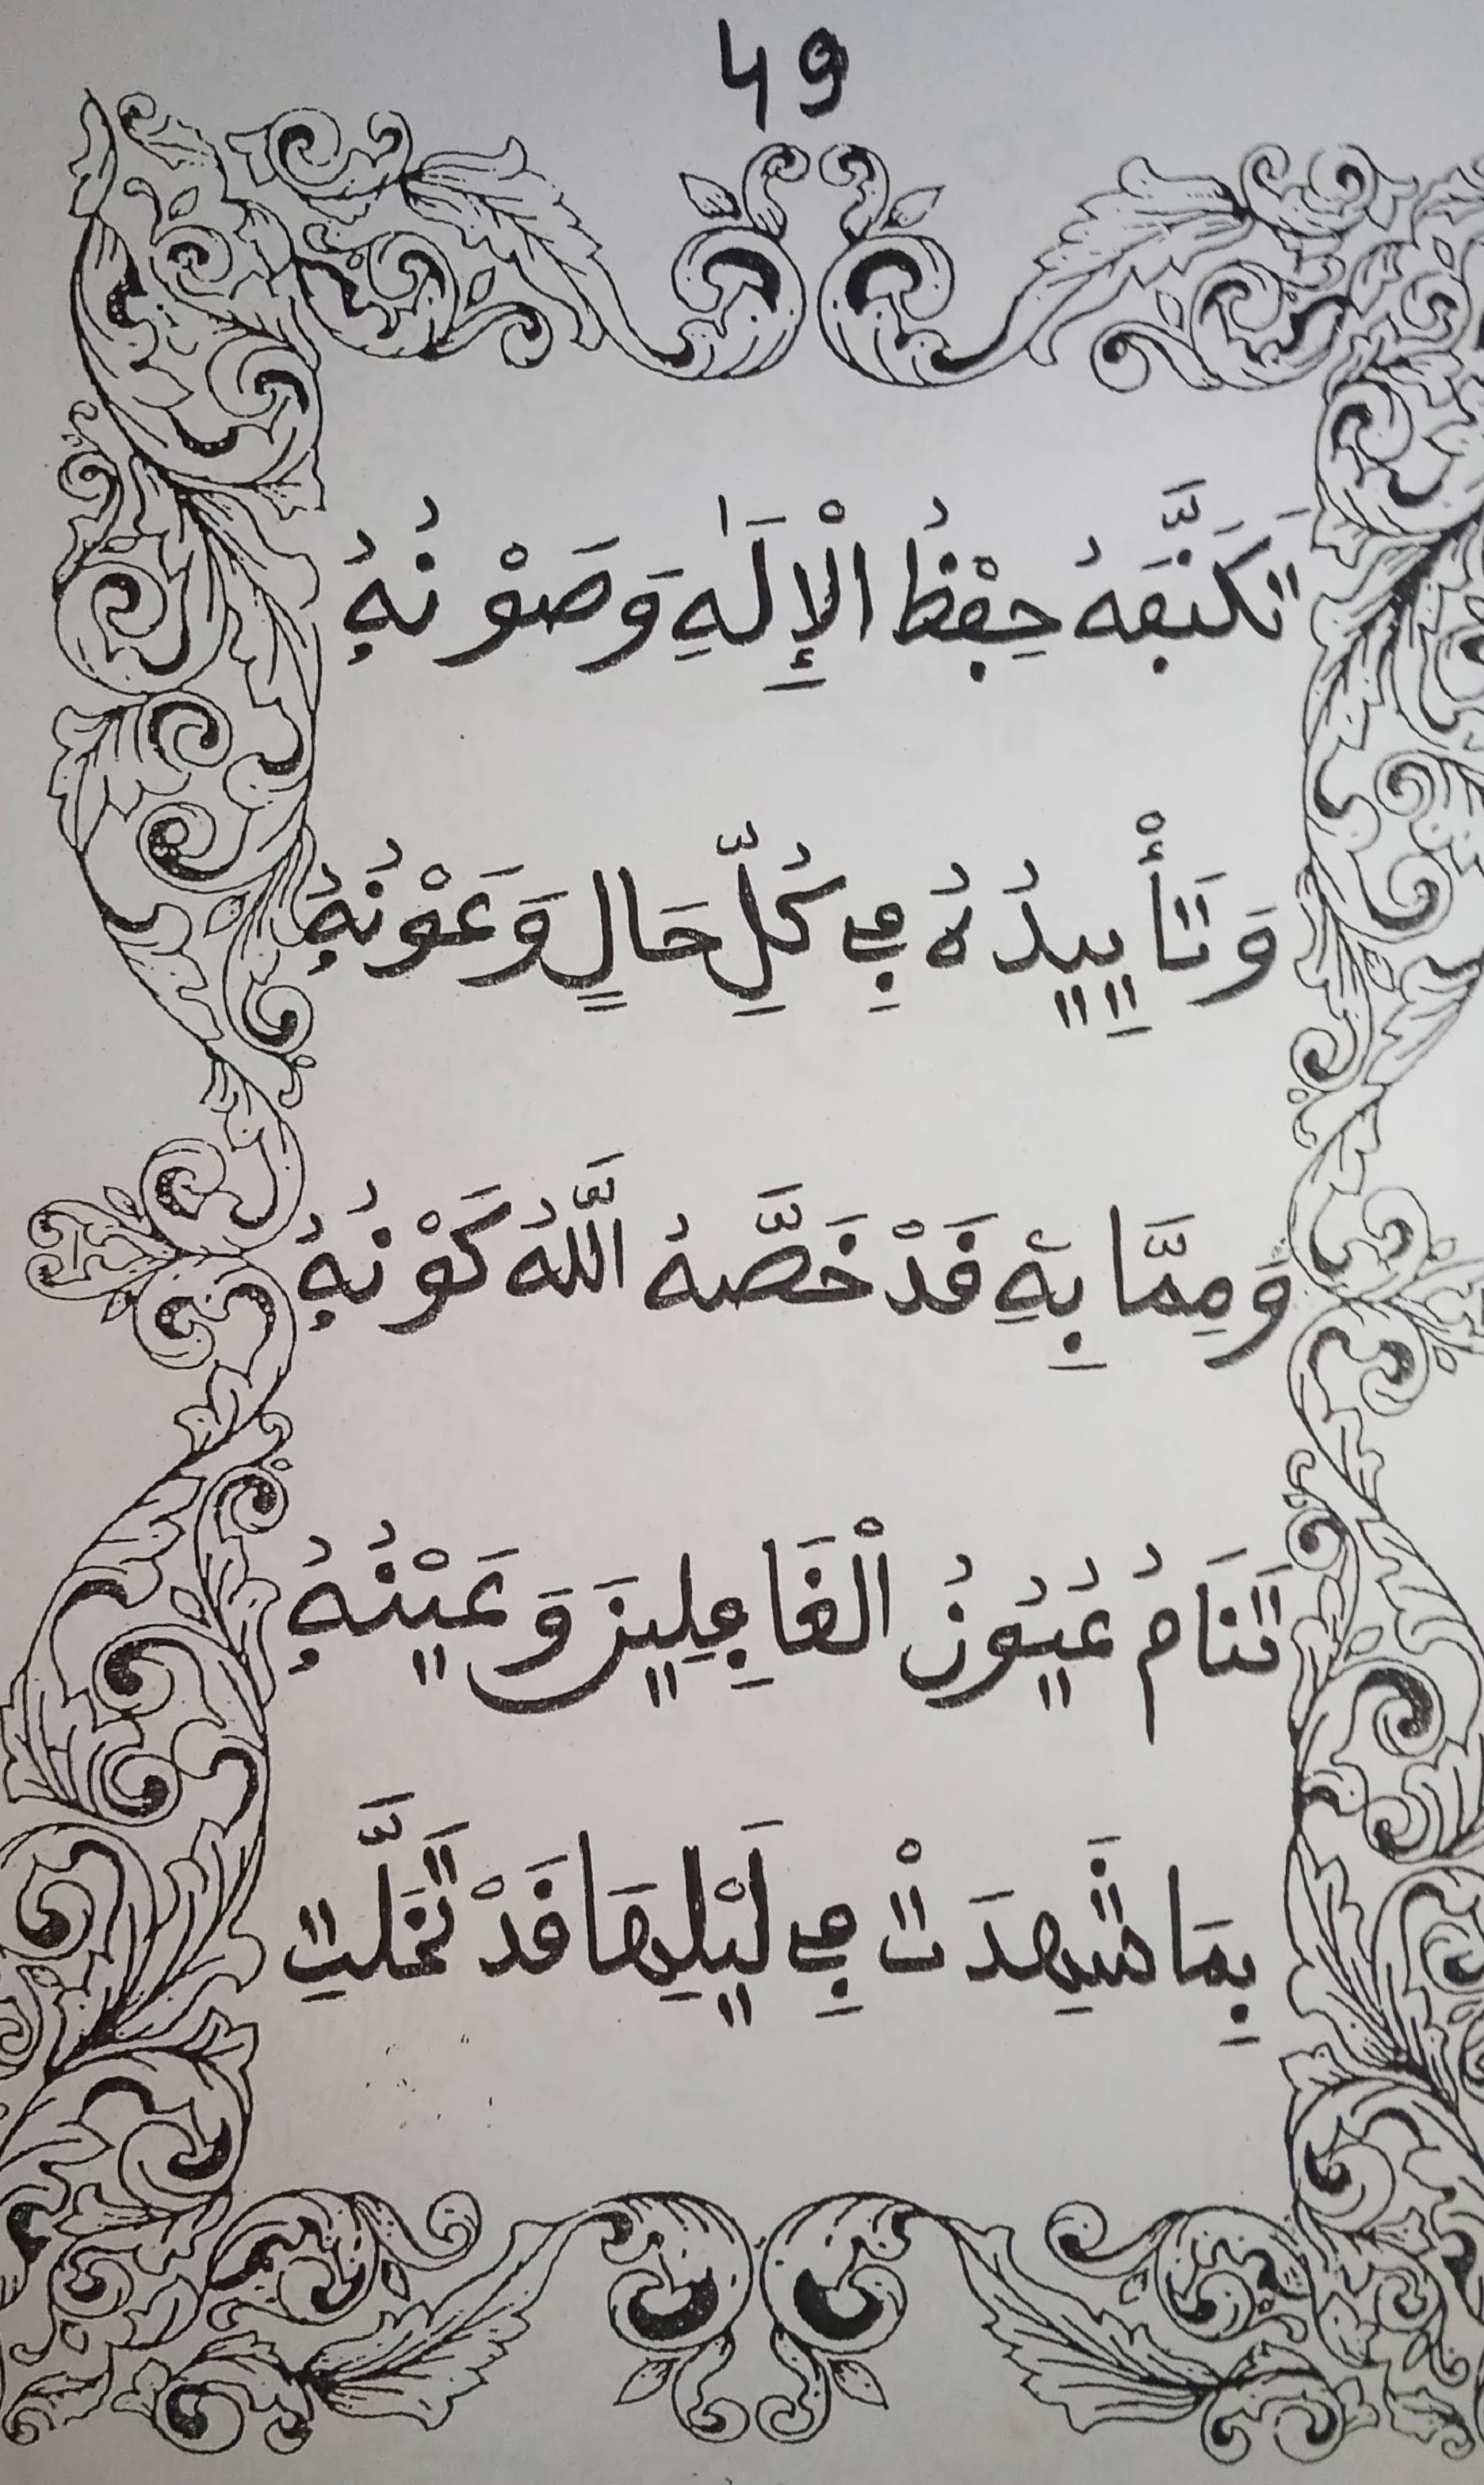 49
تَكَنَّفَهُ حِفْظُ الْإِلَٰهِ وَصَوْنُهُ
وَتَأْيِيدُهُ فِي كُلِّ حَالٍ وَعَوْنُهُ
وَمِمَّا بِهِ قَدْ خَصَّهُ اللَّهُ كَوْنُهُ
تَنَامُ عُيُونُ الْغَافِلِينَ وَعَيْنُهُ
بِمَا شَهِدَتْ فِي لَيْلِهَا قَدْ تَمَلَّتِ